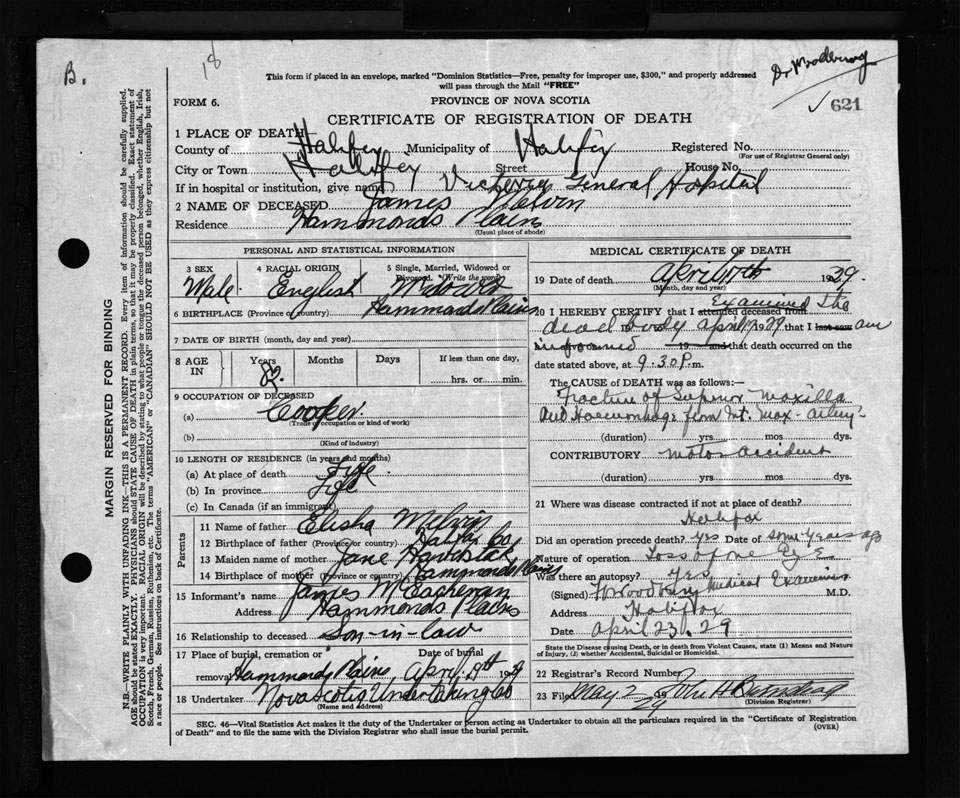 B.
18
Dr Woodbury
This form if placed in an envelope, marked "Dominion Statistics—Free, penalty for improper use, $300," and properly addressed
will pass through the Mail "FREE"
✓ 621
FORM 6.
PROVINCE OF NOVA SCOTIA
CERTIFICATE OF REGISTRATION OF DEATH
1 PLACE OF DEATH—
County of Halifax Municipality of Halifax Registered No.
(For use of Registrar General only)
City or Town Halifax Street House No.
If in hospital or institution, give name Victoria General Hospital
2 NAME OF DECEASED James Melvin
Residence Hammonds Plains
(Usual place of abode)
PERSONAL AND STATISTICAL INFORMATION
3 SEX 4 RACIAL ORIGIN 5 Single, Married, Widowed or
Divorced. (Write the word)
Male. English Widowed
6 BIRTHPLACE (Province or country) Hammonds Plains
7 DATE OF BIRTH (month, day and year)
8 AGE IN Years Months Days If less than one day,
82. hrs. or min.
9 OCCUPATION OF DECEASED
(a) Cooper
(Trade occupation or kind of work)
(b)
(Kind of industry)
10 LENGTH OF RESIDENCE (in years and months)
(a) At place of death Life
(b) In province Life
(c) In Canada (if an immigrant)
Parents
11 Name of father Elisha Melvin
12 Birthplace of father (Province or country) Halifax Co
13 Maiden name of mother Jane
14 Birthplace of mother (Province or country) Hammonds Plains
15 Informant's name James McEacheran
Address Hammonds Plains
16 Relationship to deceased Son-in-law
17 Place of burial, cremation or Date of burial
removal Hammonds Plains April 19th 1929
18 Undertaker Nova Scotia Undertaking Co
(Name and address)
MEDICAL CERTIFICATE OF DEATH
19 Date of death April 17th 1929.
(Month, day and year)
Examined the
20 I HEREBY CERTIFY that I attended deceased from
dead body April 17 1929 that I last saw am
informed 19 and that death occurred on the
date stated above, at 9.30 P. m.
The CAUSE of DEATH was as follows:—
Fracture of Superior Maxilla
and Haemorrhage from Int. Max- artery-
(duration) yrs mos dys.
CONTRIBUTORY motor accident
(duration) yrs mos dys.
21 Where was disease contracted if not at place of death?
Halifax
Did an operation precede death? yes Date of some years ago
Nature of operation Loss of one Eye
Was there an autopsy? Yes
(Signed) Woodbury Medical Examiner M.D.
Address Halifax
Date April 23. 29
State the Disease causing Death, or in death from Violent Causes, state (1) Means and Nature
of Injury, (2) whether Accidental, Suicidal or Homicidal.
22 Registrar's Record Number
23 Filed May 2 1929 John H
(Division Registrar)
SEC. 46—Vital Statistics Act makes it the duty of the Undertaker or person acting as Undertaker to obtain all the particulars required in the "Certificate of Registration
of Death" and to file the same with the Division Registrar who shall issue the burial permit.
(OVER)
MARGIN RESERVED FOR BINDING
N.B.—WRITE PLAINLY WITH UNFADING INK—THIS IS A PERMANENT RECORD. Every item of information should be carefully supplied.
AGE should be stated EXACTLY. PHYSICIANS should STATE CAUSE OF DEATH in plain terms, so that it may be properly classified. Exact statement of
OCCUPATION is very important. RACIAL ORIGIN will be described by stating to what people or tongue the deceased person belonged, whether English, Irish,
Scotch, French, German, Russian, Ruthenian, etc. The terms "AMERICAN" or "CANADIAN" SHOULD NOT BE USED as they express citizenship but not
a race or people. See instructions on back of Certificate.